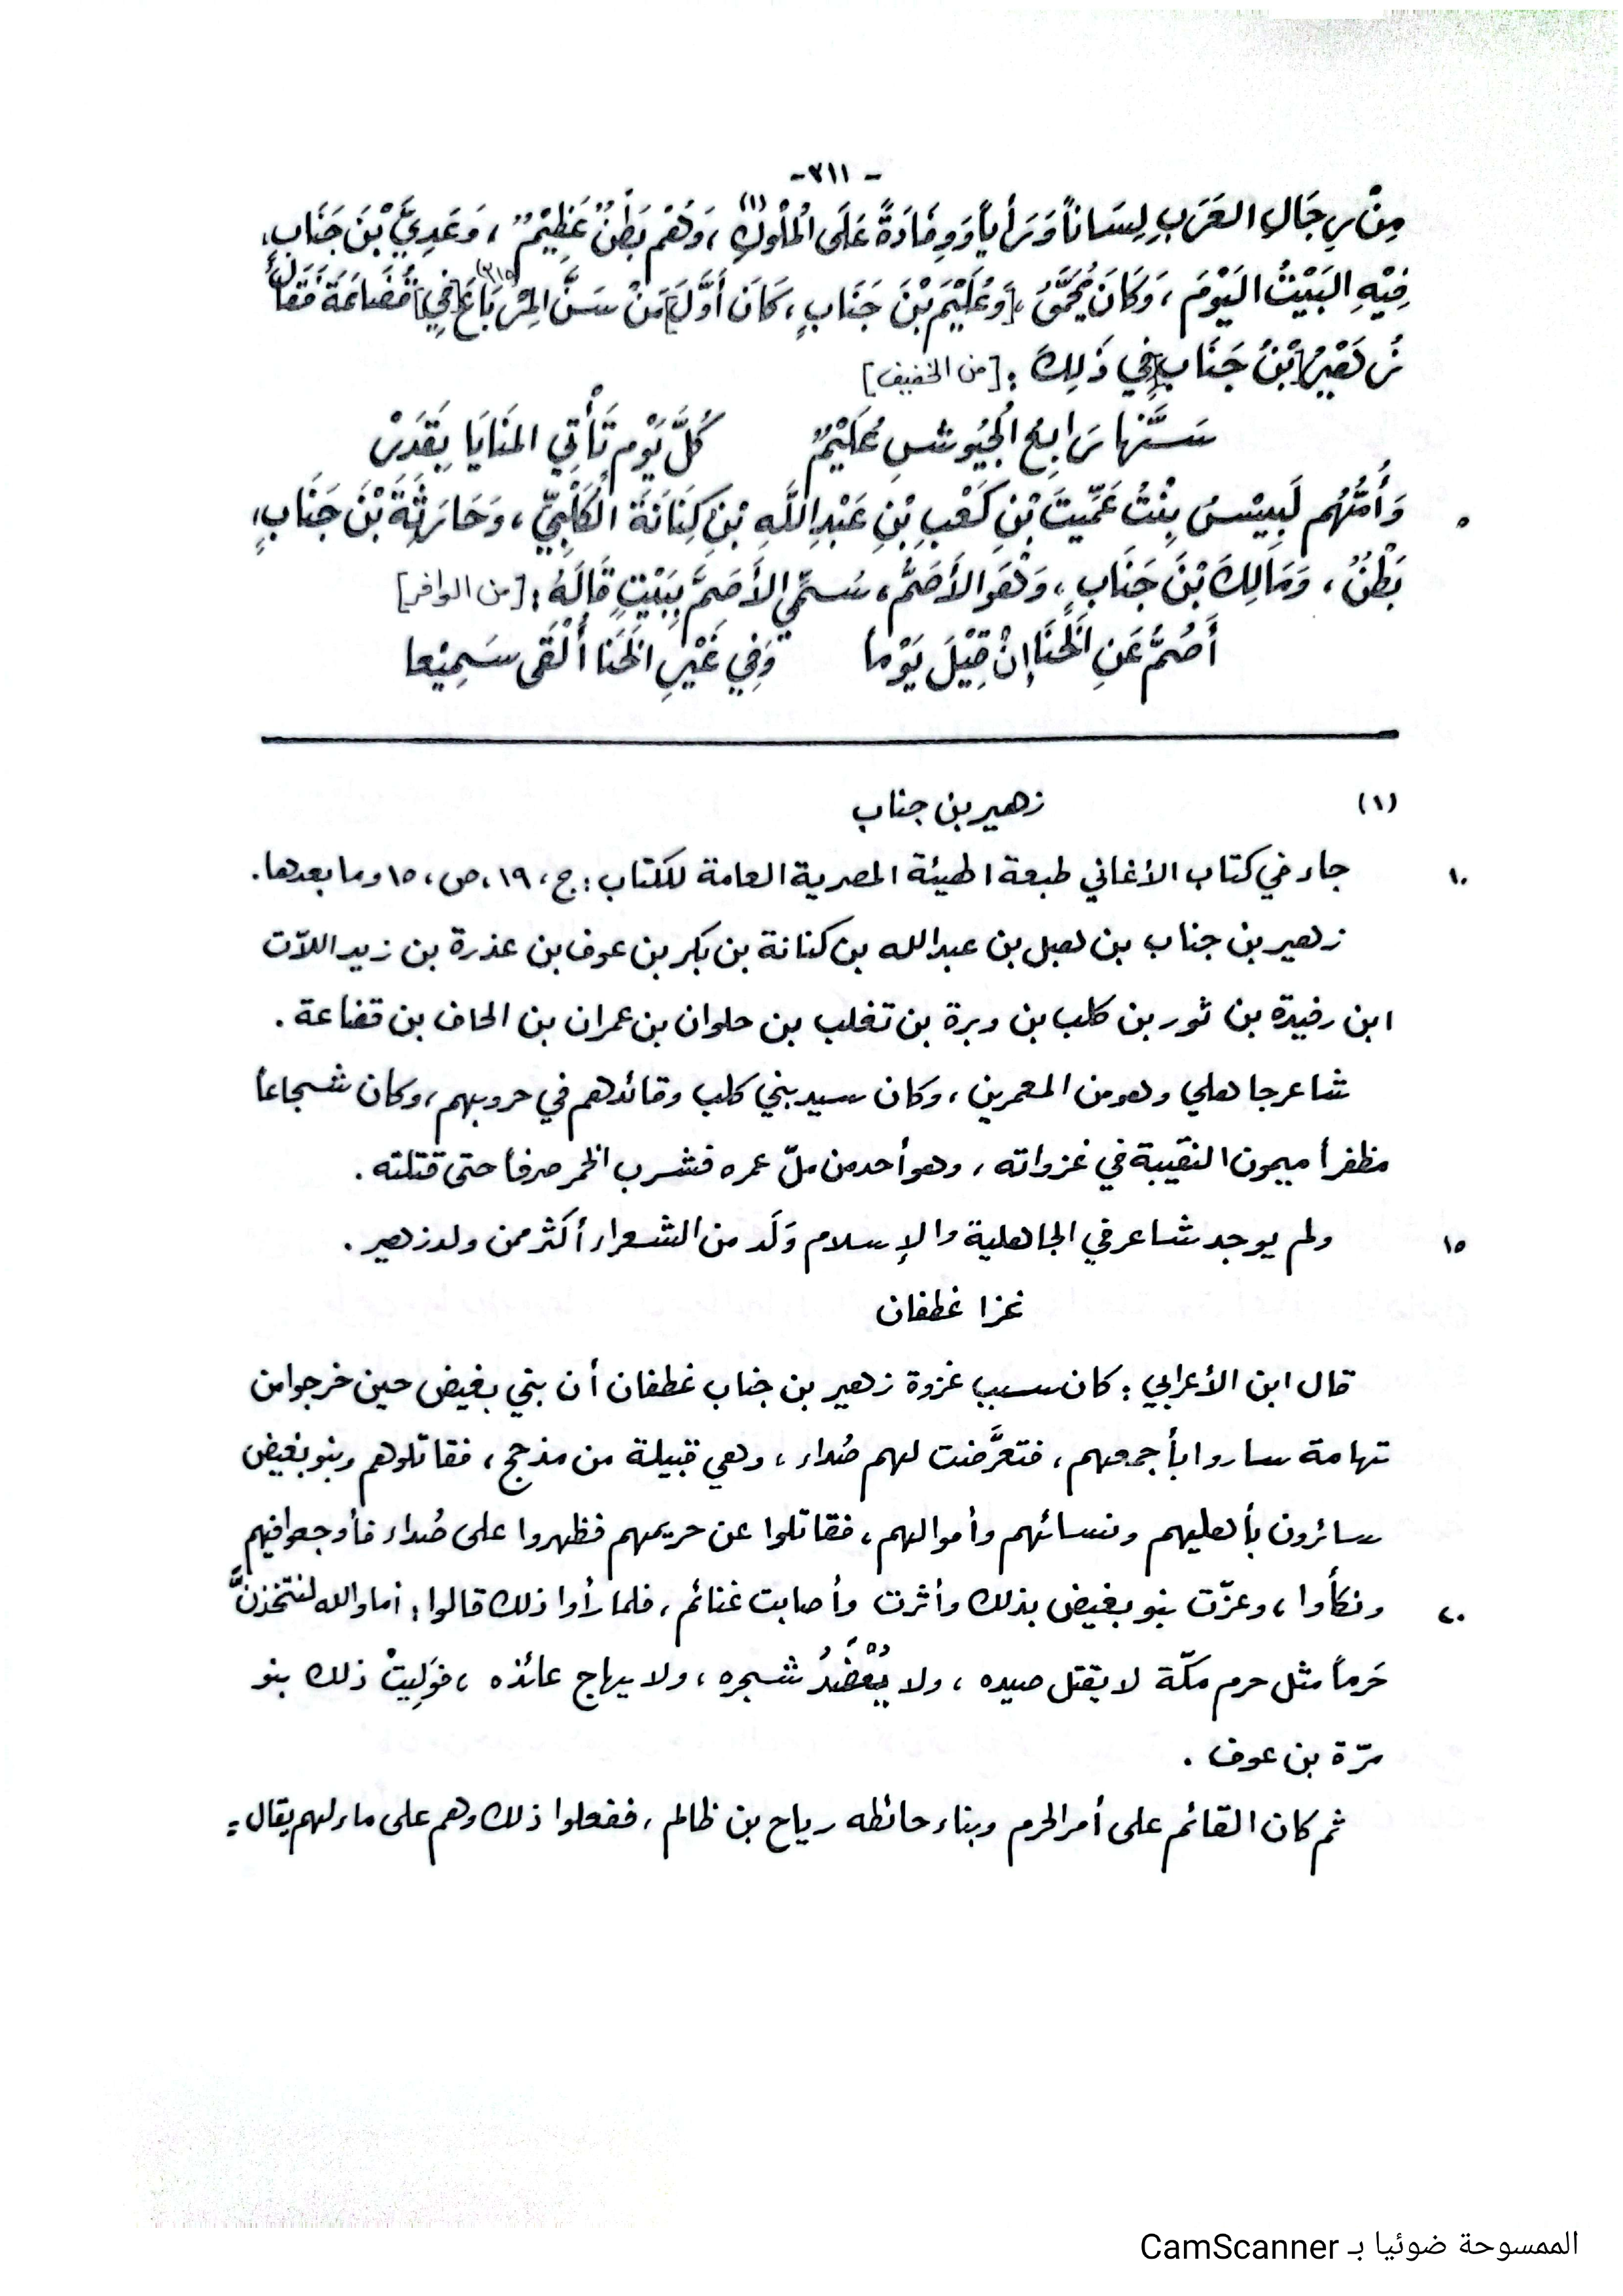 - ٣١١ -
مِنْ رِجَالِ العَرَبِ لِسَاناً وَرَأياً وَوِفَادَةً عَلَى الْمُلُوكِ (١)، وَهُم بَطْنٌ عَظِيْمٌ، وَعَدِيَّ بْنَ جَنَابٍ،
فِيْهِ البَيْتُ اليَوْمَ، وَكَانَ يُحَمَّقُ، [وَعُلَيْمَ بْنَ جَنَابٍ، كَانَ أَوَّلَ] مَنْ سَنَّ المِرْبَاعَ [فِي] قُضَاعَةَ فَقَالَ
زُهَيْرُ [بْنُ جَنَابٍ] فِي ذَلِكَ: [من الخفيف]
سَنَّهَا رَابِعُ الْجُيُوشِ عُلَيْمٌ كُلَّ يَوْمٍ تَأْتِي المَنَايَا بِقَدَرْ
وَأُمُّهُم لَمِيْسُ بِنْتُ عَمِّيتَ بْنِ كَعْبِ بْنِ عَبْدِ اللَّهِ بْنِ كِنَانَةَ الْكَلْبِيِّ، وَحَارِثَةَ بْنَ جَنَابٍ، ٥
بَطْنٌ، وَمَالِكَ بْنَ جَنَابٍ، وَهُوَ الأَصَمُّ، سُمِّيَ الأَصَمَّ بِبَيْتٍ قَالَهُ: [من الوافر]
أَصُمُّ عَنِ الْخَنَا إِنْ قِيْلَ يَوْماً وَفِي غَيْرِ الْخَنَا أُلْفَى سَمِيْعا
(١) زهير بن جناب
جاء في كتاب الأغاني طبعة الهيئة المصرية العامة للكتاب: ج، ١٩، ص، ١٥ وما بعدها. ١٠
زهير بن جناب بن هبل بن عبدالله بن كنانة بن بكر بن عوف بن عذرة بن زيد اللآت
ابن رفيدة بن ثور بن كلب بن وبرة بن تغلب بن حلوان بن عمران بن الحاف بن قضاعة.
شاعر جاهلي وهو من المعمرين، وكان سيد بني كلب وقائدهم في حروبهم، وكان شجاعاً
مظفراً ميمون النقيبة في غزواته، وهو أحد من ملّ عمره فشرب الخمر صرفاً حتى قتلته.
ولم يوجد شاعر في الجاهلية والإسلام وَلَد من الشعراء أكثر ممن ولد زهير. ١٥
غزا غطفان
قال ابن الأعرابي: كان سبب غزوة زهير بن جناب غطفان أن بني بغيض حين خرجوا من
تهامة ساروا بأجمعهم، فتعرَّضت لهم صُداء، وهي قبيلة من مذحج، فقاتلوهم وبنو بغيض
سائرون بأهليهم ونسائهم وأموالهم، فقاتلوا عن حريمهم فظهروا على صُداء فأوجعوا فيهم
ونكأوا، وعزّت بنو بغيض بذلك وأثرت وأصابت غنائم، فلما رأوا ذلك قالوا: أما والله لنتخذنَّ ٢٠
حَرماً مثل حرم مكّة لا يقتل صيده، ولا يُعْضَدُ شجره، ولا يهاج عائذه، فوَلِيتْ ذلك بنو
مرّة بن عوف.
ثم كان القائم على أمر الحرم وبناء حائطه رياح بن ظالم، ففعلوا ذلك وهم على ماء لهم يقال =
الممسوحة ضوئيا بـ CamScanner